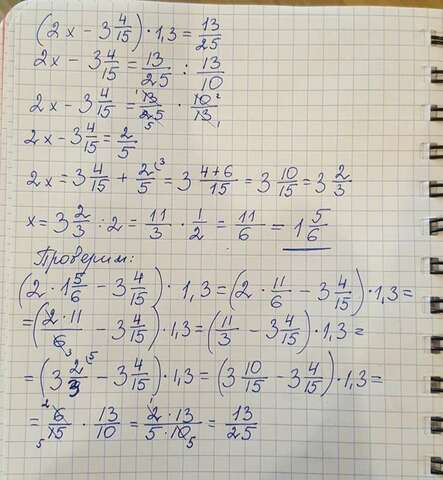 (2x - 3 4/15) · 1,3 = 13/25
2x - 3 4/15 = 13/25 : 13/10
2x - 3 4/15 = 13/25 · 10/13
2x - 3 4/15 = 2/5
2x = 3 4/15 + 2/5 = 3 (4+6)/15 = 3 10/15 = 3 2/3
x = 3 2/3 : 2 = 11/3 · 1/2 = 11/6 = 1 5/6
Проверим:
(2 · 1 5/6 - 3 4/15) · 1,3 = (2 · 11/6 - 3 4/15) · 1,3 =
= (2 · 11/6 - 3 4/15) · 1,3 = (11/3 - 3 4/15) · 1,3 =
= (3 2/3 - 3 4/15) · 1,3 = (3 10/15 - 3 4/15) · 1,3 =
= 6/15 · 13/10 = 2 · 13/5 · 10 = 13/25